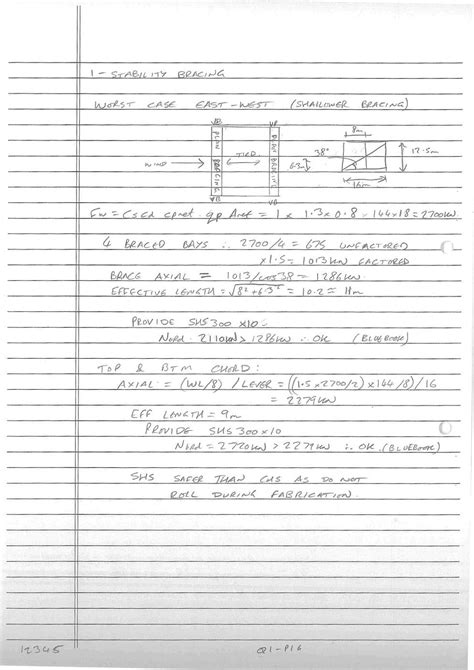 1 - STABILITY BRACING
WORST CASE EAST-WEST (SHALLOWER BRACING)
VB VB
8m
PLAN BRACING
WIND
TIED
PLAN BRACING
38°
6.3m
12.5m
16m
VB VB
Fw = CsCd cpnet. qp Aref = 1 x 1.3 x 0.8 - 144x18 = 2700kN
4 BRACED BAYS ∴ 2700/4 = 675 UNFACTORED
x1.5 = 1013kN FACTORED
BRACE AXIAL = 1013/cos38 = 1286kN
EFFECTIVE LENGTH = √8²+6.3² = 10.2 = 11m
PROVIDE SHS 300 x10 -
NbRd 2110kN > 1286kN ∴ OK (BLUEBOOK)
TOP & BTM CHORD:
AXIAL = (WL/8) / LEVER = ((1.5 x 2700/2) x144/8)/16
= 2279kN
EFF LENGTH = 9m
PROVIDE SHS 300x10
NbRd = 2720kN > 2279kN ∴ OK. (BLUEBOOK)
SHS SAFER THAN CHS AS DO NOT
ROLL DURING FABRICATION.
12345
Q1-P16